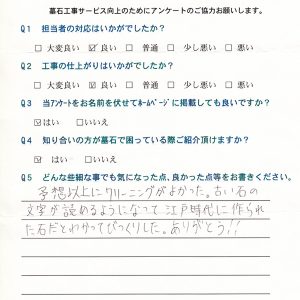 墓石工事サービス向上のためにアンケートのご協力お願いします。
Q1 担当者の対応はいかがでしたか?
□ 大変良い ☑ 良い □ 普通 □ 少し悪い □ 悪い
Q2 工事の仕上がりはいかがでしたか?
□ 大変良い ☑ 良い □ 普通 □ 少し悪い □ 悪い
Q3 当アンケートをお名前を伏せてホームページに掲載しても良いですか?
☑はい □いいえ
Q4 知り合いの方が墓石で困っている際ご紹介頂けますか?
☑ はい □いいえ
Q5 どんな些細な事でも気になった点、良かった点等をお書きください。
予想以上にクリーニングがよかった。古い石の
文字が読めるようになって江戸時代に作られ
た石だとわかってびっくりした。ありがとう!!